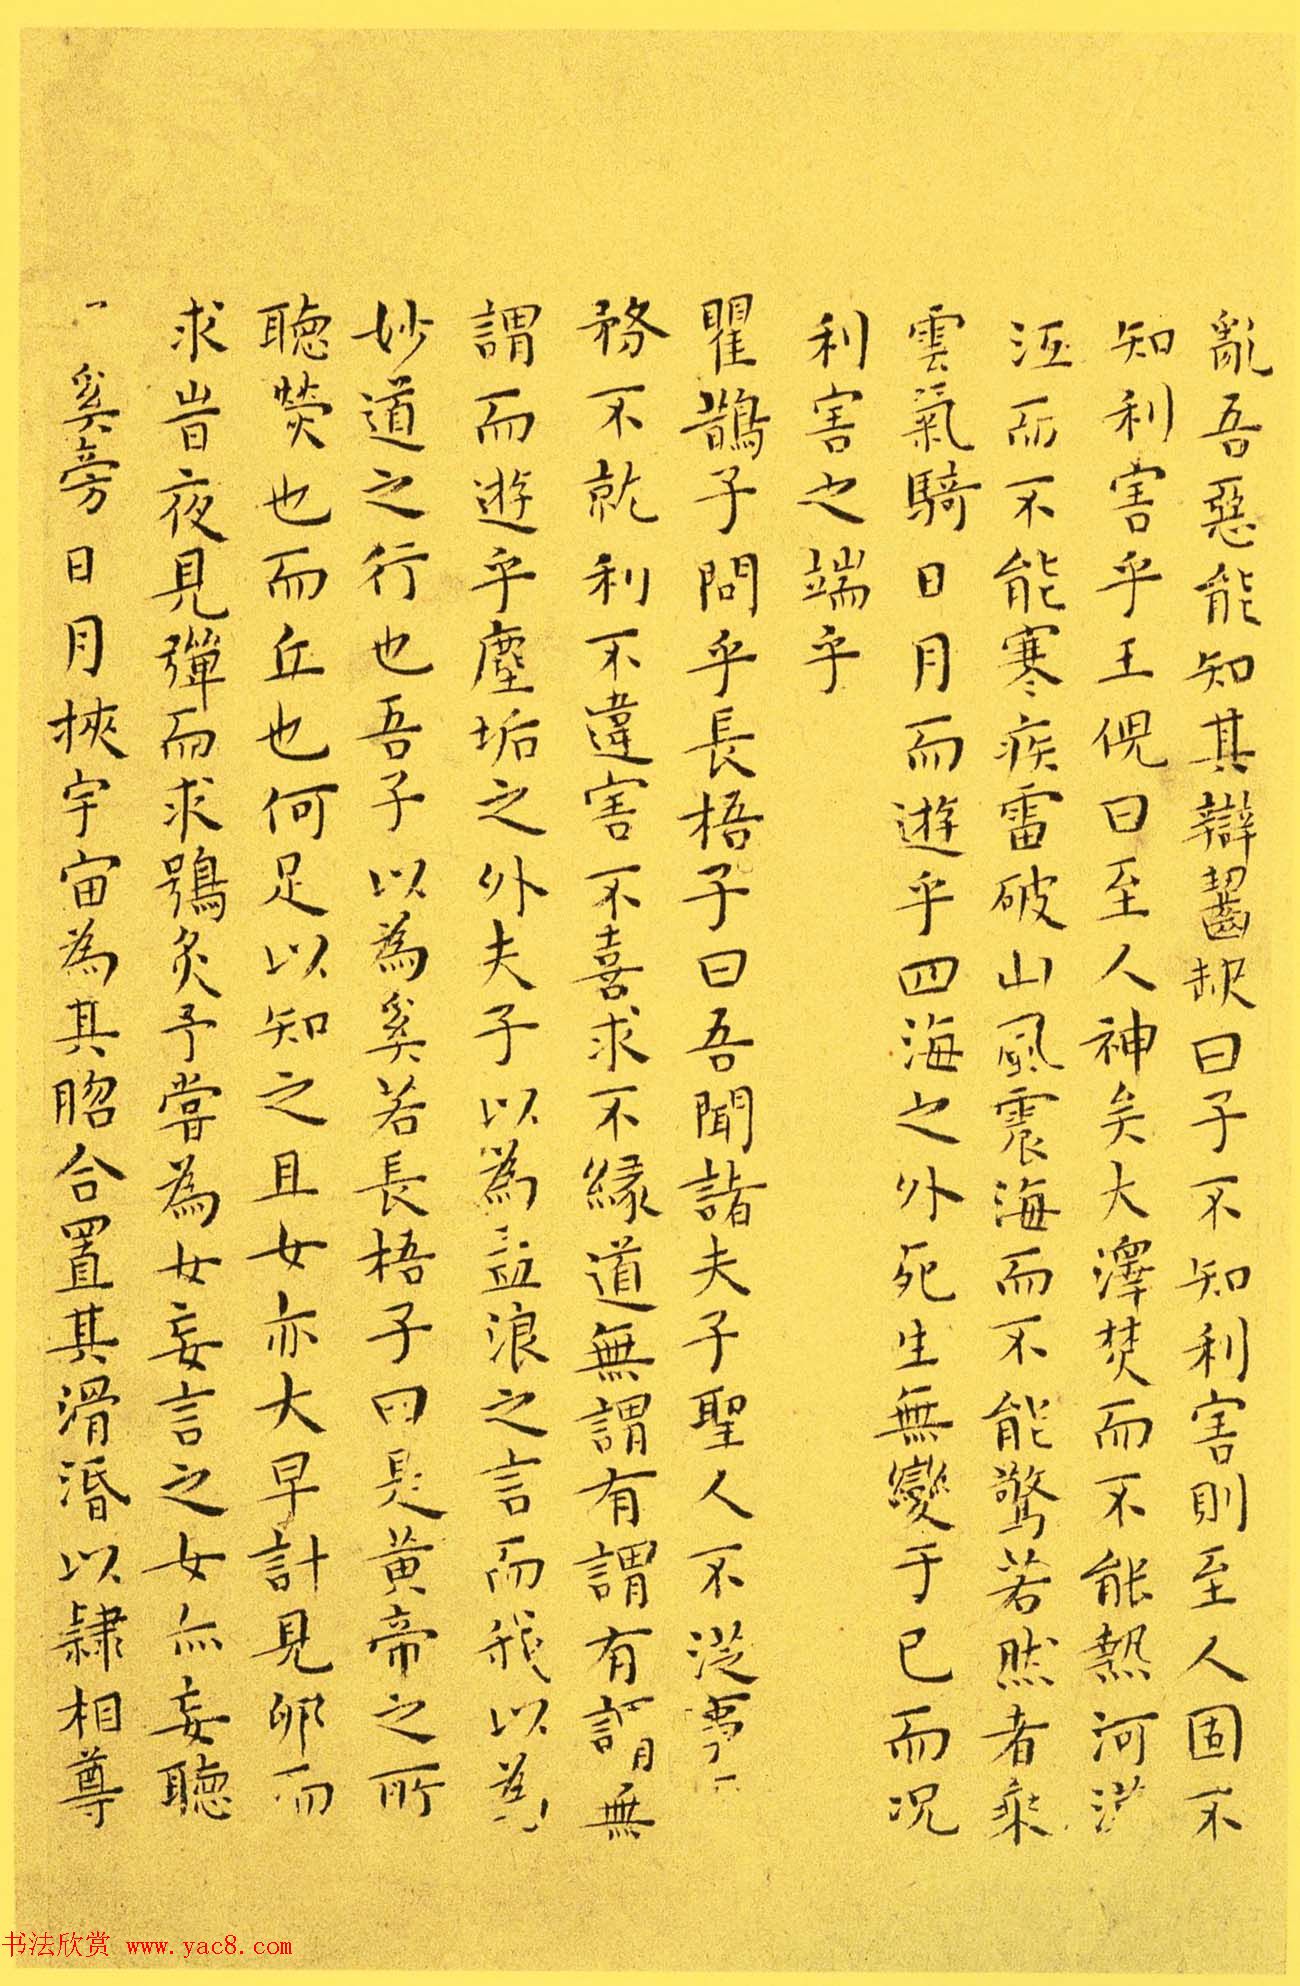 亂吾惡能知其辯齧缺曰子不知利害則至人固不
知利害乎王倪曰至人神矣大澤焚而不能熱河
沍而不能寒疾雷破山風震海而不能驚若然者乘
雲氣騎日月而遊乎四海之外死生無變于己而況
利害之端乎
瞿鵲子問乎長梧子曰吾聞諸夫子聖人不從事
務不就利不違害不喜求不緣道無謂有謂有謂無
謂而遊乎塵垢之外夫子以為孟浪之言而我以為
妙道之行也吾子以為奚若長梧子曰是黃帝之所
聽熒也而丘也何足以知之且女亦大早計見卵而
求時夜見彈而求鴞炙予嘗為女妄言之女亦妄聽
奚旁日月挾宇宙為其脗合置其滑涽以隸相尊
书法欣赏 www.yac8.com